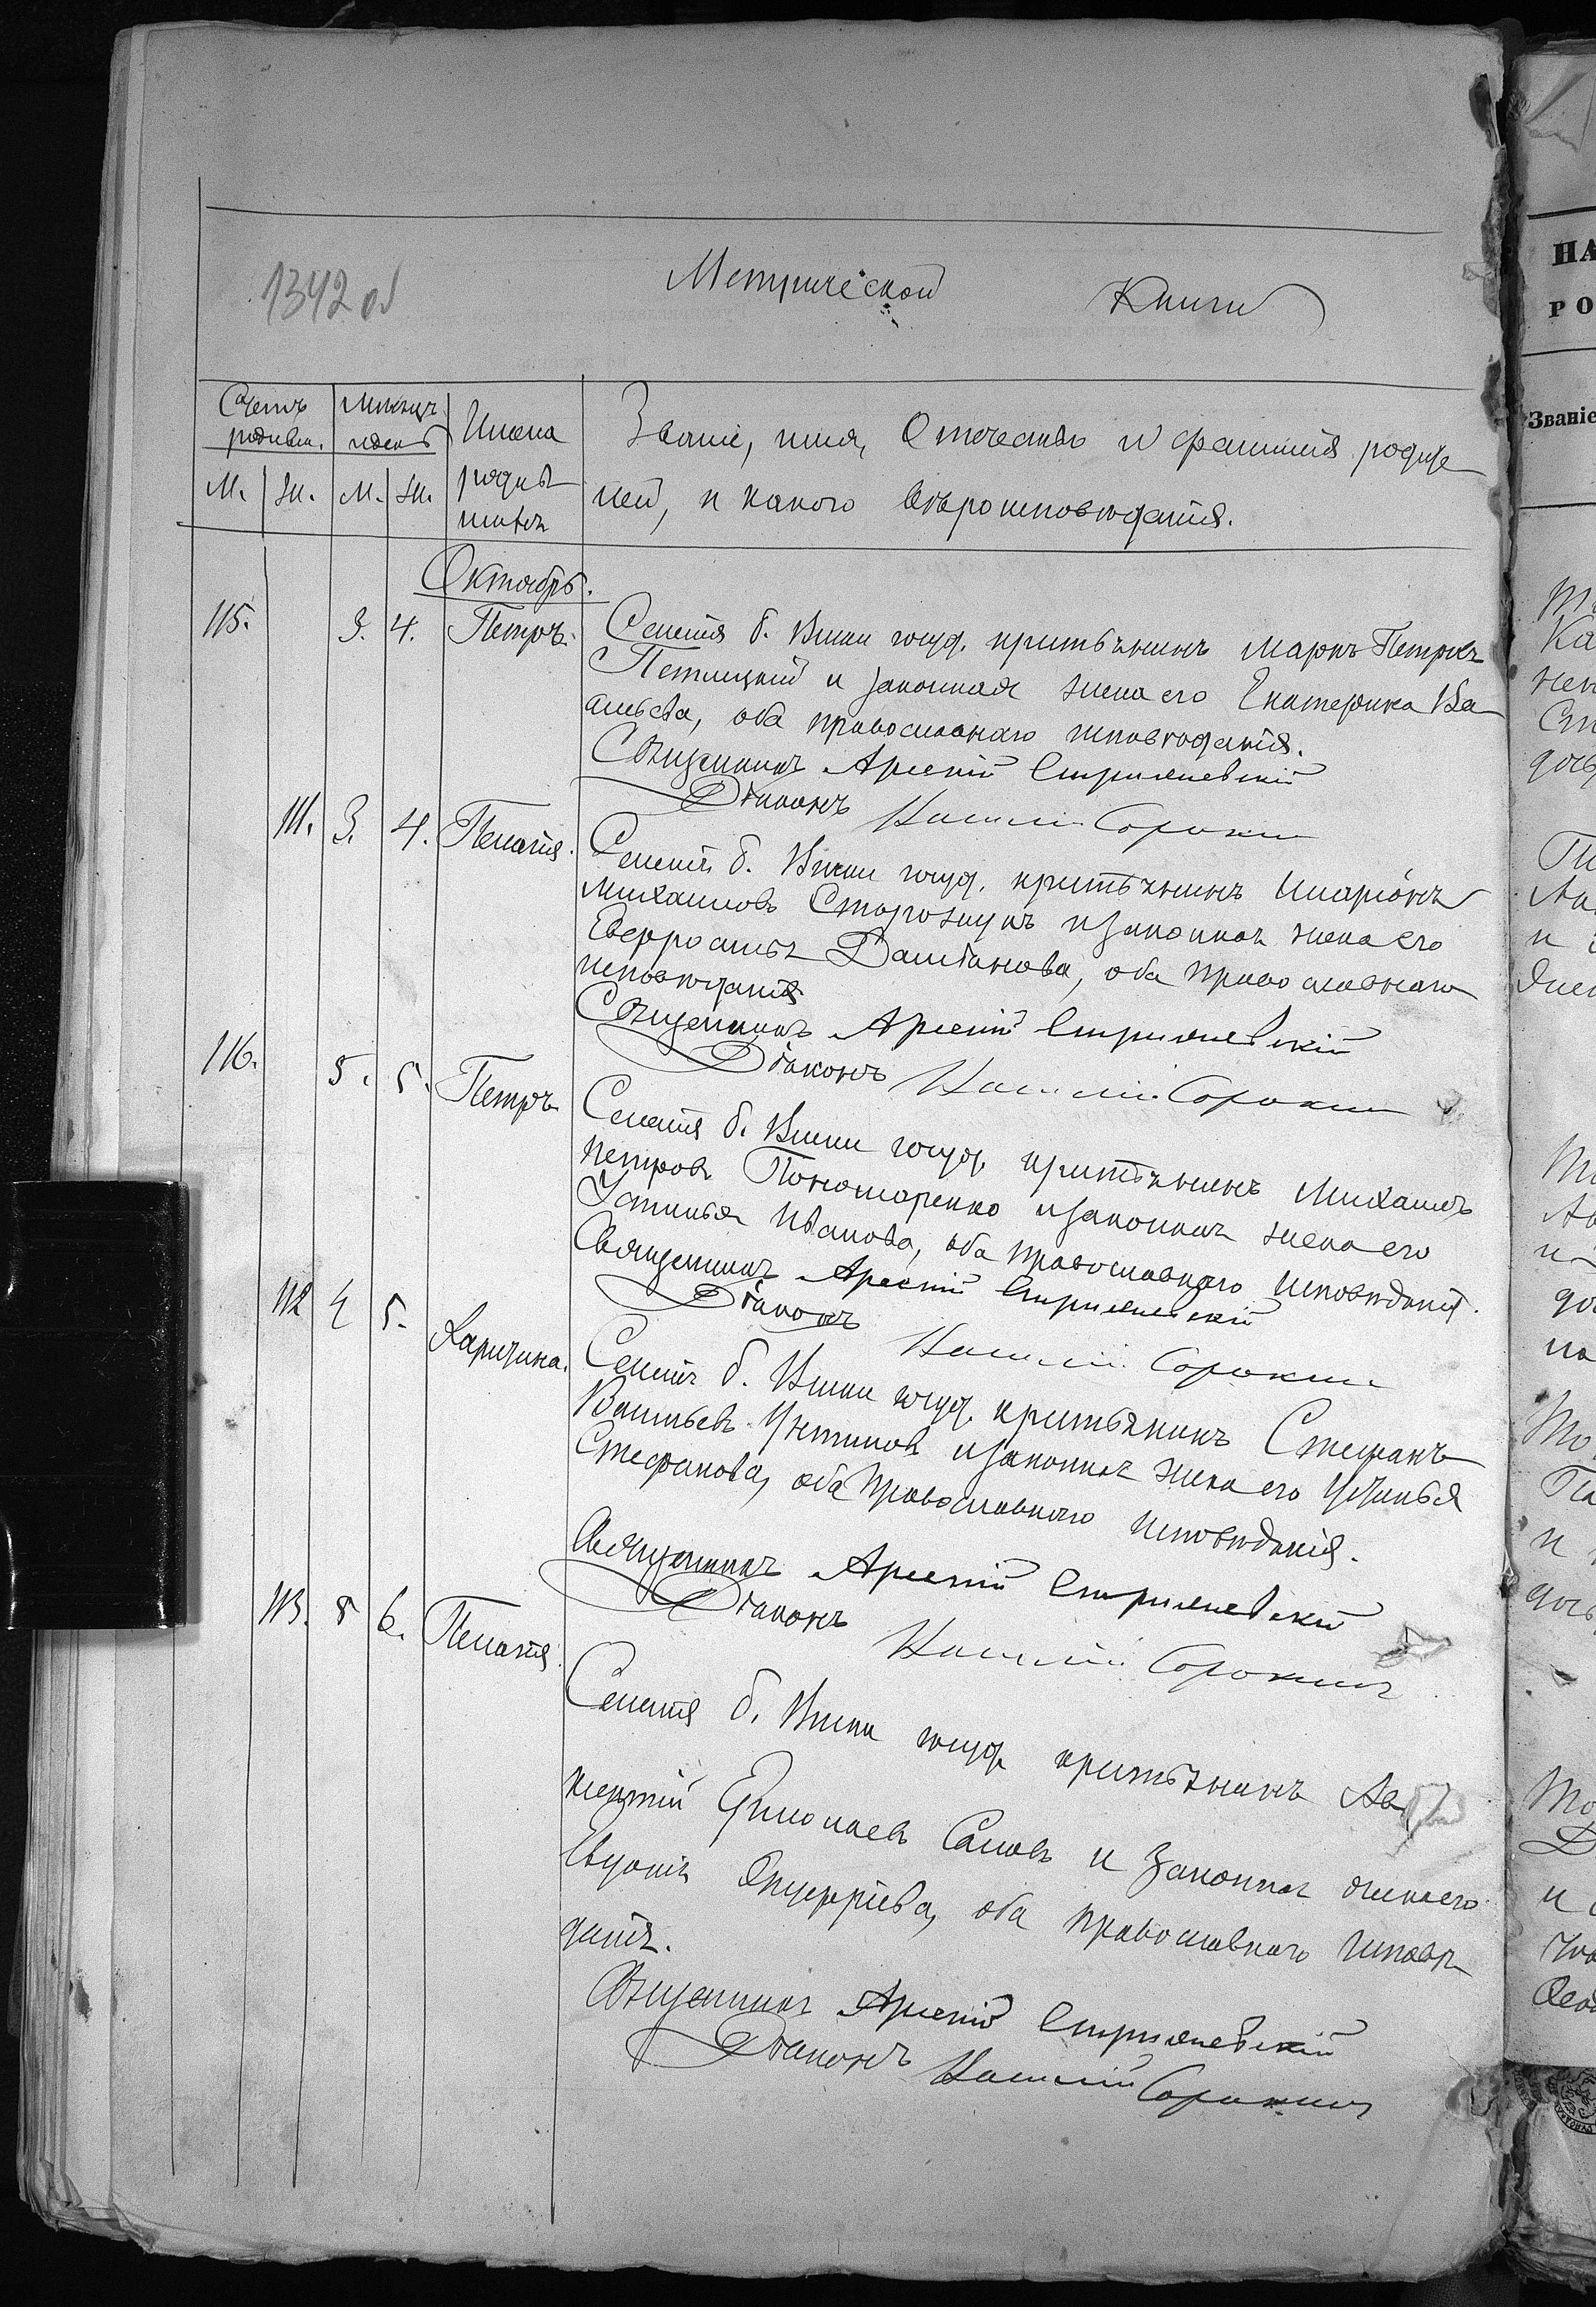 1342 об
Метрической Книги
Счетъ родивш.
Мѣсяцъ и день
Имена родив-
шихся
М. Ж. М. Ж.
Званіе, имя, Отечество и фамилія родите-
лей, и какого вѣроисповѣданія.
Октябрь.
115. 3. 4. Петръ.
Селенія б. Виски госуд. крестьянинъ Маркъ Петровъ
и законная жена его Екатерина Ва-
сильева, оба православнаго исповѣданія.
Священникъ Арсеній
Діаконъ Василій Сорокин
111. 3. 4. Пелагія.
Селенія б. Виски госуд. крестьянинъ Иларіонъ
Михаиловъ Сторожукъ и законная жена его
Евфросинья Даміанова, оба православнаго
исповѣданія
Священникъ Арсеній
Діаконъ Василій Сорокин
116. 5. 5. Петръ
Селенія б. Виски госуд. крестьянинъ Михаилъ
Петровъ Пономаренко и законная жена его
Устинья Иванова, оба православнаго исповѣданія.
Священникъ Арсеній
Діаконъ Василій Сорокин
112 4 5. Харитина.
Селенія б. Виски госуд. крестьянинъ Стефанъ
Васильевъ и законная жена его Устинья
Стефанова, оба православнаго исповѣданія.
Священникъ Арсеній
Діаконъ Василій Сорокин
113. 5 6. Пелагія.
Селенія б. Виски госуд. крестьянинъ Ав
ксентій Ермолаевъ и законная жена его
Евдокія Онуфріева, оба православнаго исповѣ-
данія.
Священникъ Арсеній
Діаконъ Василій Сорокин
НА
РО
Званіе